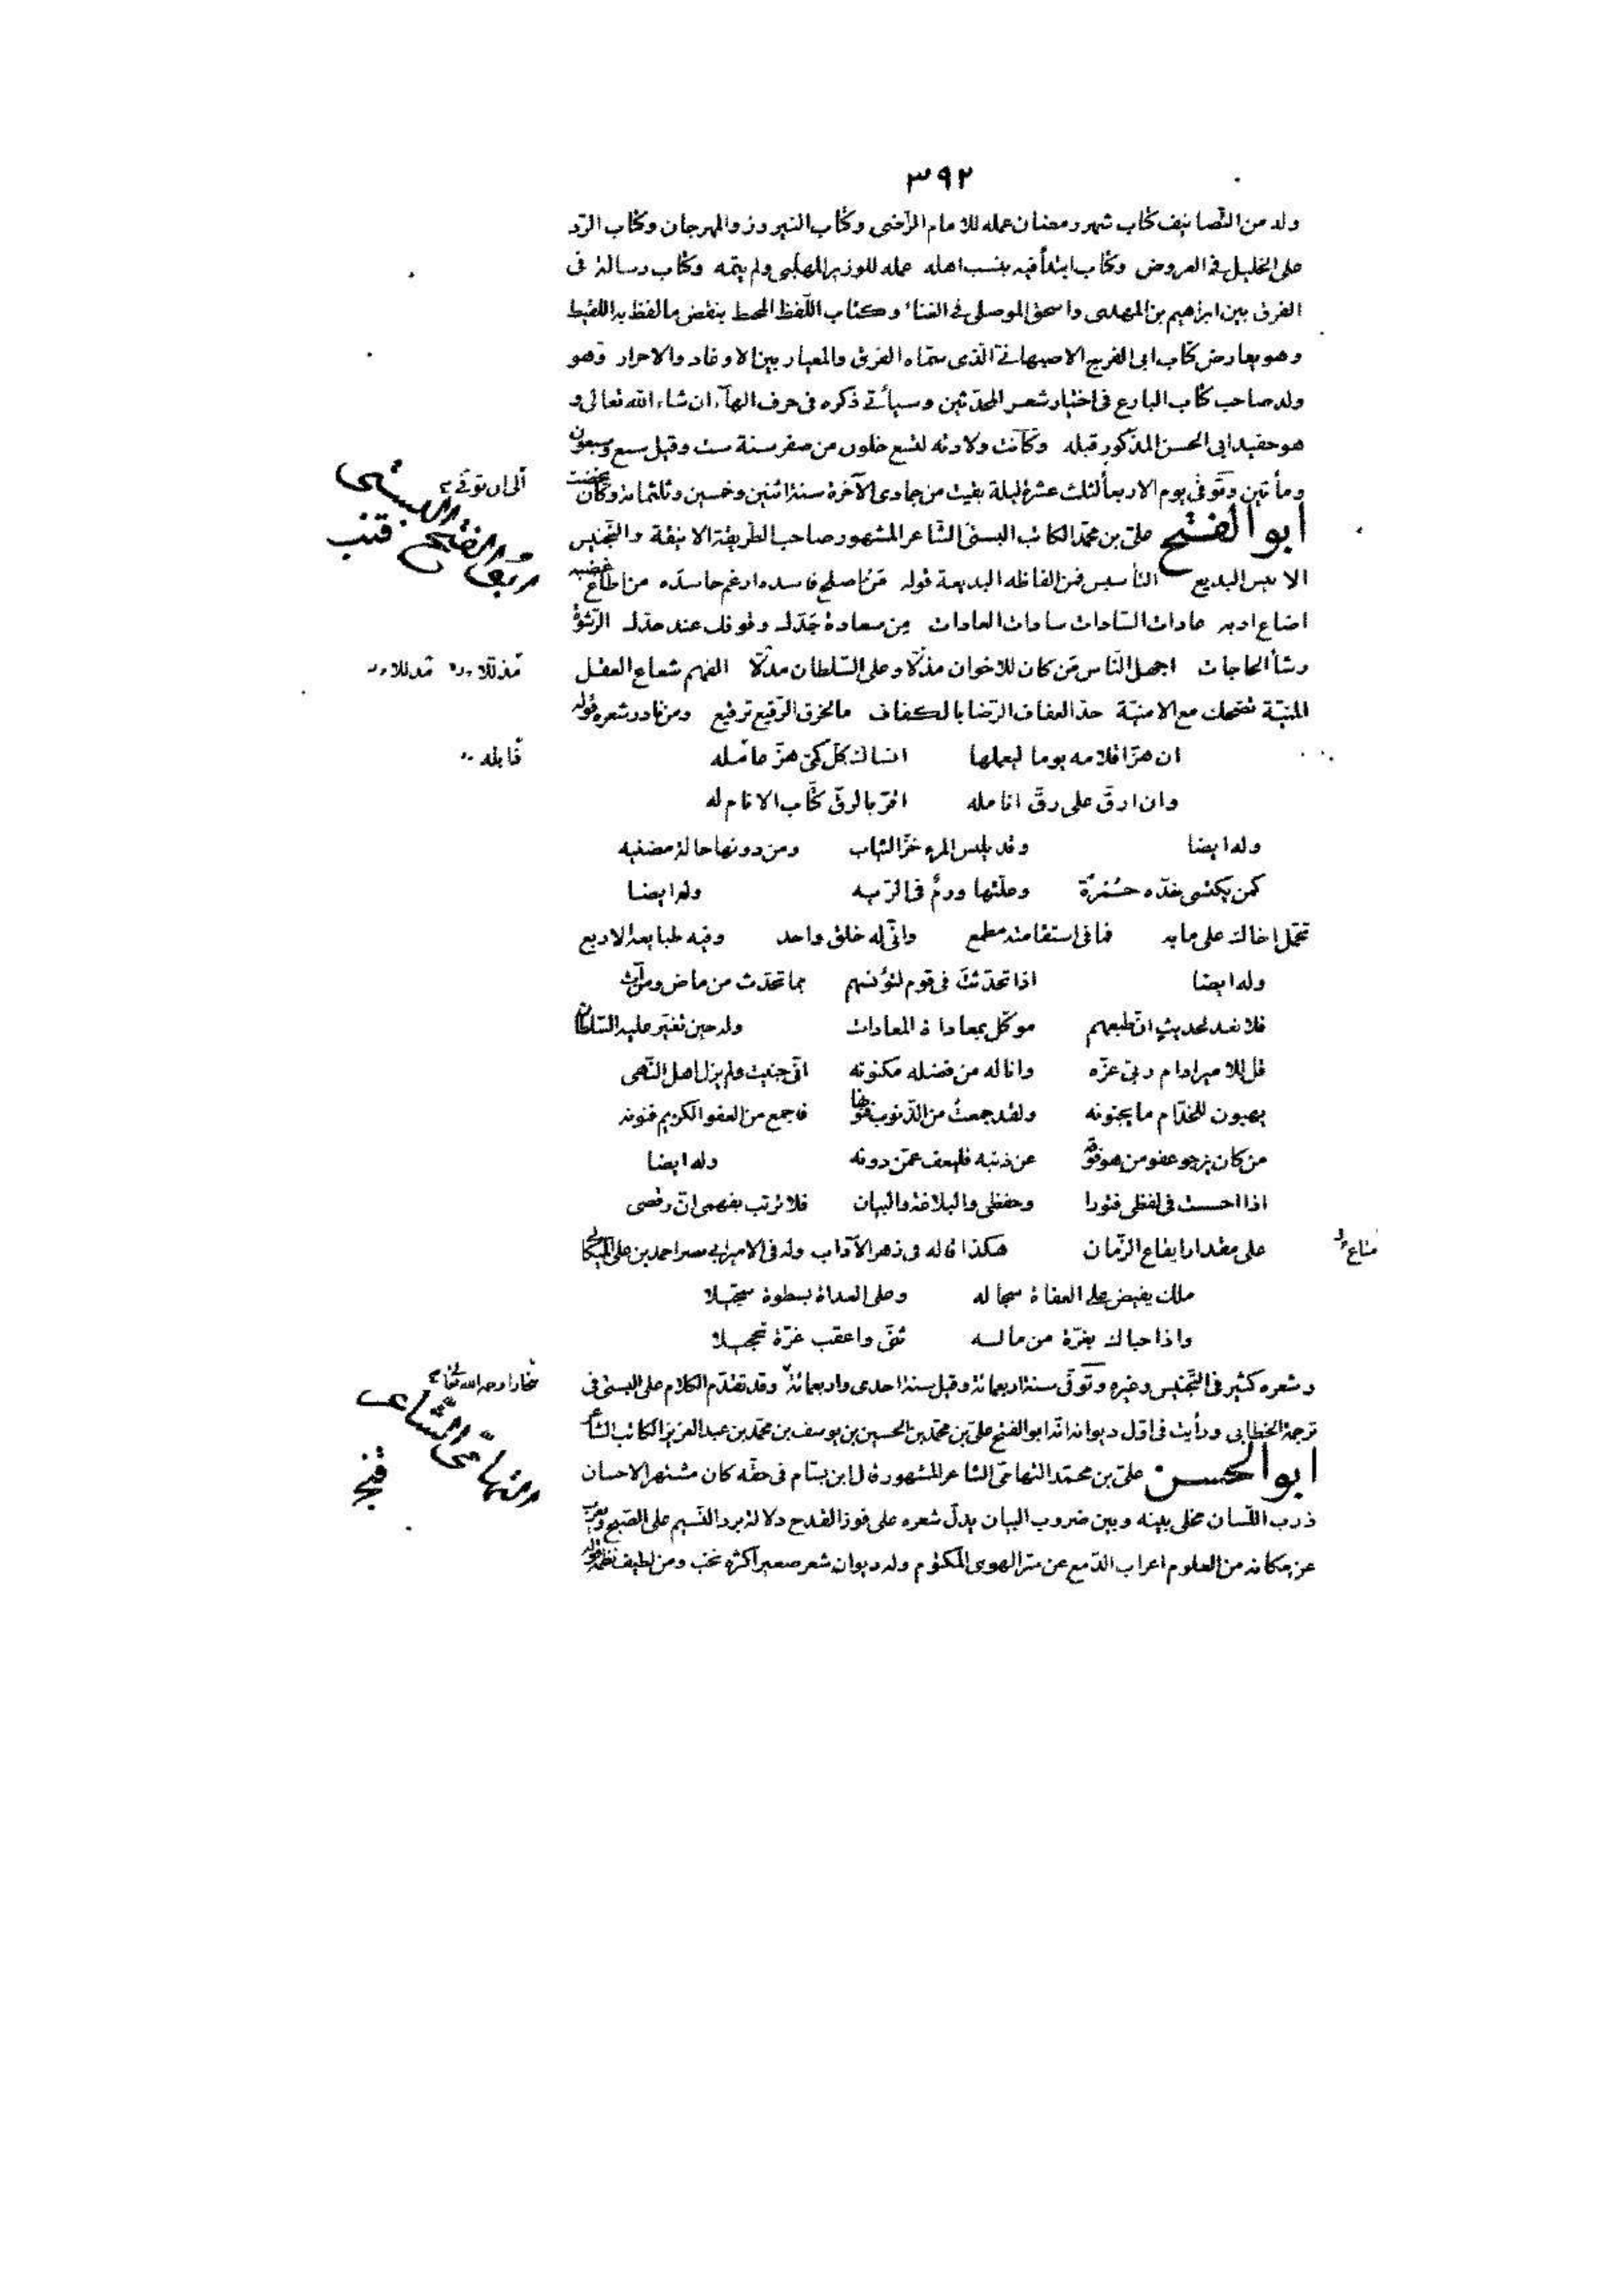 ٣٩٢
وله من التصانيف كتاب شهر رمضان عمله للامام الراضى وكتاب النيروز والمهرجان وكتاب الرد
على الخليل فى العروض وكتاب ابتدأ فيه بنسب اهله عمله للوزير المهلبى ولم يتمه وكتاب رسالة فى
الفرق بين ابراهيم بن المهدى واسحق الموصلى فى الغناء وكتاب اللفظ المحيط بنقض ما لفظ به اللقيط
وهو يعارض كتاب ابى الفرج الاصبهانى الذى سماه الفرق والمعيار بين الاوغاد والاحرار وهو
ولد صاحب كتاب البارع فى اختيار شعر المحدثين وسيأتى ذكره فى حرف الهاء ان شاء الله تعالى و
هو حفيد ابى الحسن المذكور قبله وكانت ولادته لتسع خلون من صفر سنة ست وقيل سبع وسبعون
ومأتين وتوفى يوم الاربعا لثلث عشرة ليلة بقيت من جمادى الآخرة سنة اثنين وخمسين وثلثمائة وكان يخضب
الى ان توفى
ابو الفتح على بن محمد الكاتب البستى الشاعر المشهور صاحب الطريقة الانيقة والتجنيس
ابو الفتح البستى
الانيس البديع التأسيس فمن الفاظه البديعة قوله من اصلح فاسده ارغم حاسده من اطاع غضبه
اضاع ادبه عادات السادات سادات العادات من سعادة جدك وقوفك عند حدك الرشوة
رشأ الحاجات اجهل الناس من كان للاخوان مذلا وعلى السلطان مدلا الفهم شعاع العقل
المنية تضحك مع الامنية حد العفاف الرضا بالكفاف ما لخرق الرقيع ترقيع ومن نادر شعره قوله
ان هز اقلامه يوما ليعملها انساك كل كمى هز عامله
وان ارق على رق انامله اقر بالرق كتاب الانام له
وله ايضا وقد يلبس المرء خز الثياب ومن دونها حالة مضنيه
كمن يكتسى خده حمرة وعلتها ورم فى الريه وله ايضا
تحمل اخاك على ما به فما فى استقامته مطمع وانى له خلق واحد وفيه طبايعه الاربع
وله ايضا اذا تحدثت فى قوم لتؤنسهم بما تحدث من ماض ومن آت
فلا تعد لحديث ان طبعهم موكل بمعاداة المعادات وله حين تغير عليه السلطان
قل للامير ادام ربى عزه واناله من فضله مكنونه انى جنيت ولم يزل اهل النهى
يهبون للخدام ما يجنونه ولقد جمعت من الذنوب فنونها فاجمع من العفو الكريم فنونه
من كان يرجو عفو من هو فوقه عن ذنبه فليعف عمن دونه وله ايضا
اذا احسست فى لفظى فتورا وحفظى والبلاغة والبيان فلا ترتب بفهمى ان رقصى
على مقدار ايقاع الزمان هكذا قاله فى زهر الآداب وله فى الامير ابى نصر احمد بن على الميكالى
ملك يفيض على العفاة سجاله وعلى العداة بسطوة سجيلا
واذا حباك بغرة من ماله ثنى واعقب غرة تحجيلا
وشعره كثير فى التجنيس وغيره وتوفى سنة اربعمائة وقيل سنة احدى واربعمائة وقد تقدم الكلام على البستى فى
بخارا رحمه الله تعالى
ترجمة الخطابى ورأيت فى اول ديوانه انه ابو الفتح على بن محمد بن الحسين بن يوسف بن محمد بن عبد العزيز الكاتب الشاعر
ابو الحسن على بن محمد التهامى الشاعر المشهور قال ابن بسام فى حقه كان مشتهر الاحسان
التهامى الشاعر
ذرب اللسان مخلى بينه وبين ضروب البيان يدل شعره على فوز القدح دلالة برد النسيم على الصبح ويعرب
عن مكانه من العلوم اعراب الدمع عن سر الهوى المكتوم وله ديوان شعر صغير اكثره نخب ومن لطيف نظمه قوله